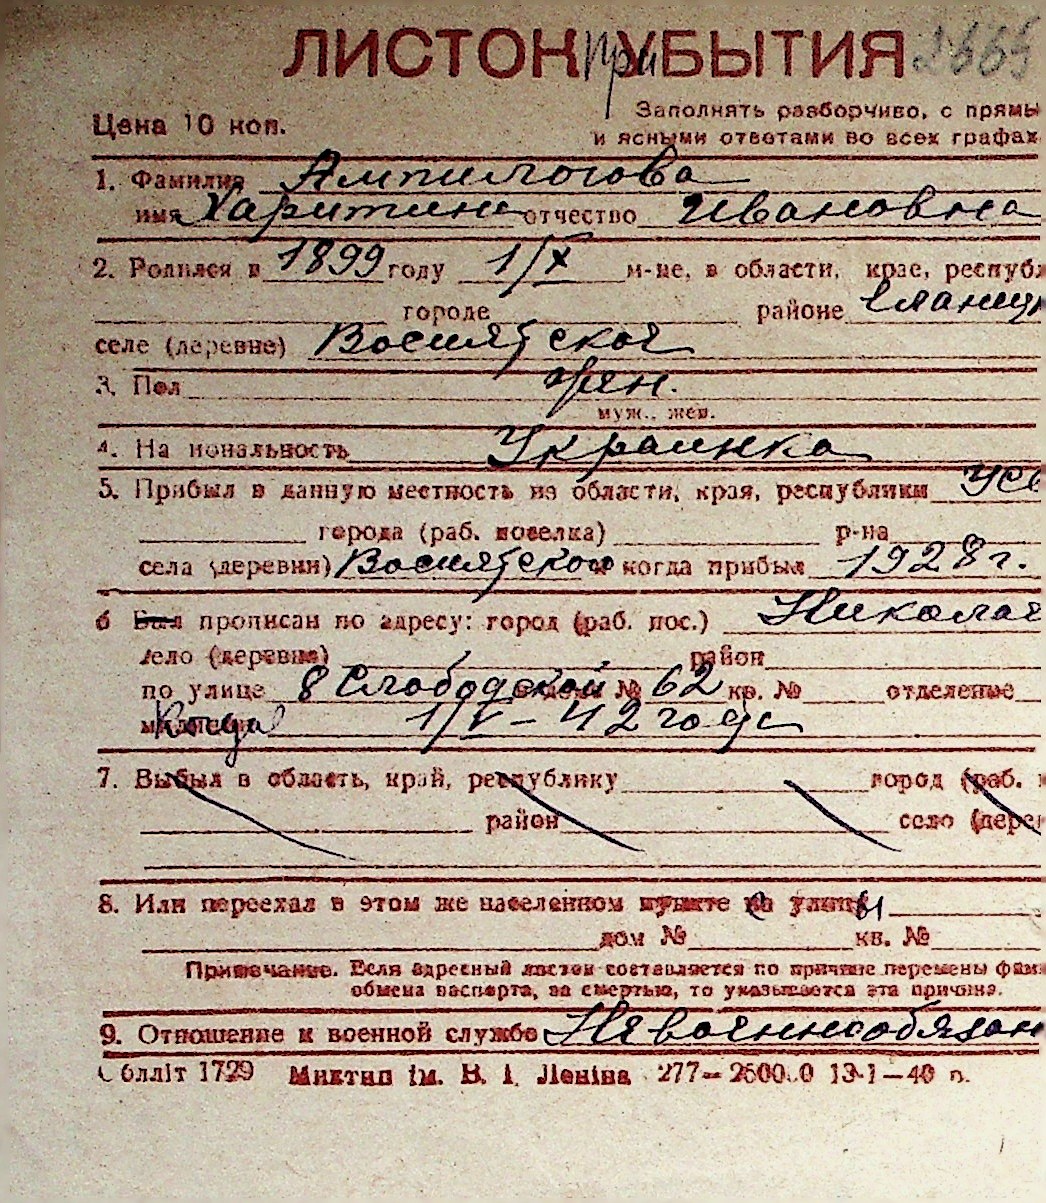 ЛИСТОК при УБЫТИЯ 2565
Цена 10 коп.
Заполнять разборчиво, с прямы
и ясными ответами во всех графах
1. Фамилия Ампилогова
имя Харитина отчество Ивановна
2. Родился в 1899 году 1/X м-це, в области, крае, республ
городе районе Еланецк
селе (деревне)
3. Пол жен.
муж., жен.
4. Национальность Украинка
5. Прибыл в данную местность из области, края, республики УСС
города (раб. поселка) р-на
села (деревни) и когда прибыл 1928 г.
6 Был прописан по адресу: город (раб. пос.) Николае
село (деревня) район
по улице 8 Слободской дом № 62 кв. № отделение
милиции Когда 1/V – 42 года
7. Выбыл в область, край, республику город (раб. п
район село (дерев
8. Или переехал в этом же населенном пункте с улицы
дом № кв. №
Примечание. Если адресный листок составляется по причине перемены фам
обмена паспорта, за смертью, то указывается эта причина.
9. Отношение к военной службе Невоеннообязан
Облліт 1729 Миктип ім. В. І. Леніна 277–2500.0 13-1–40 р.